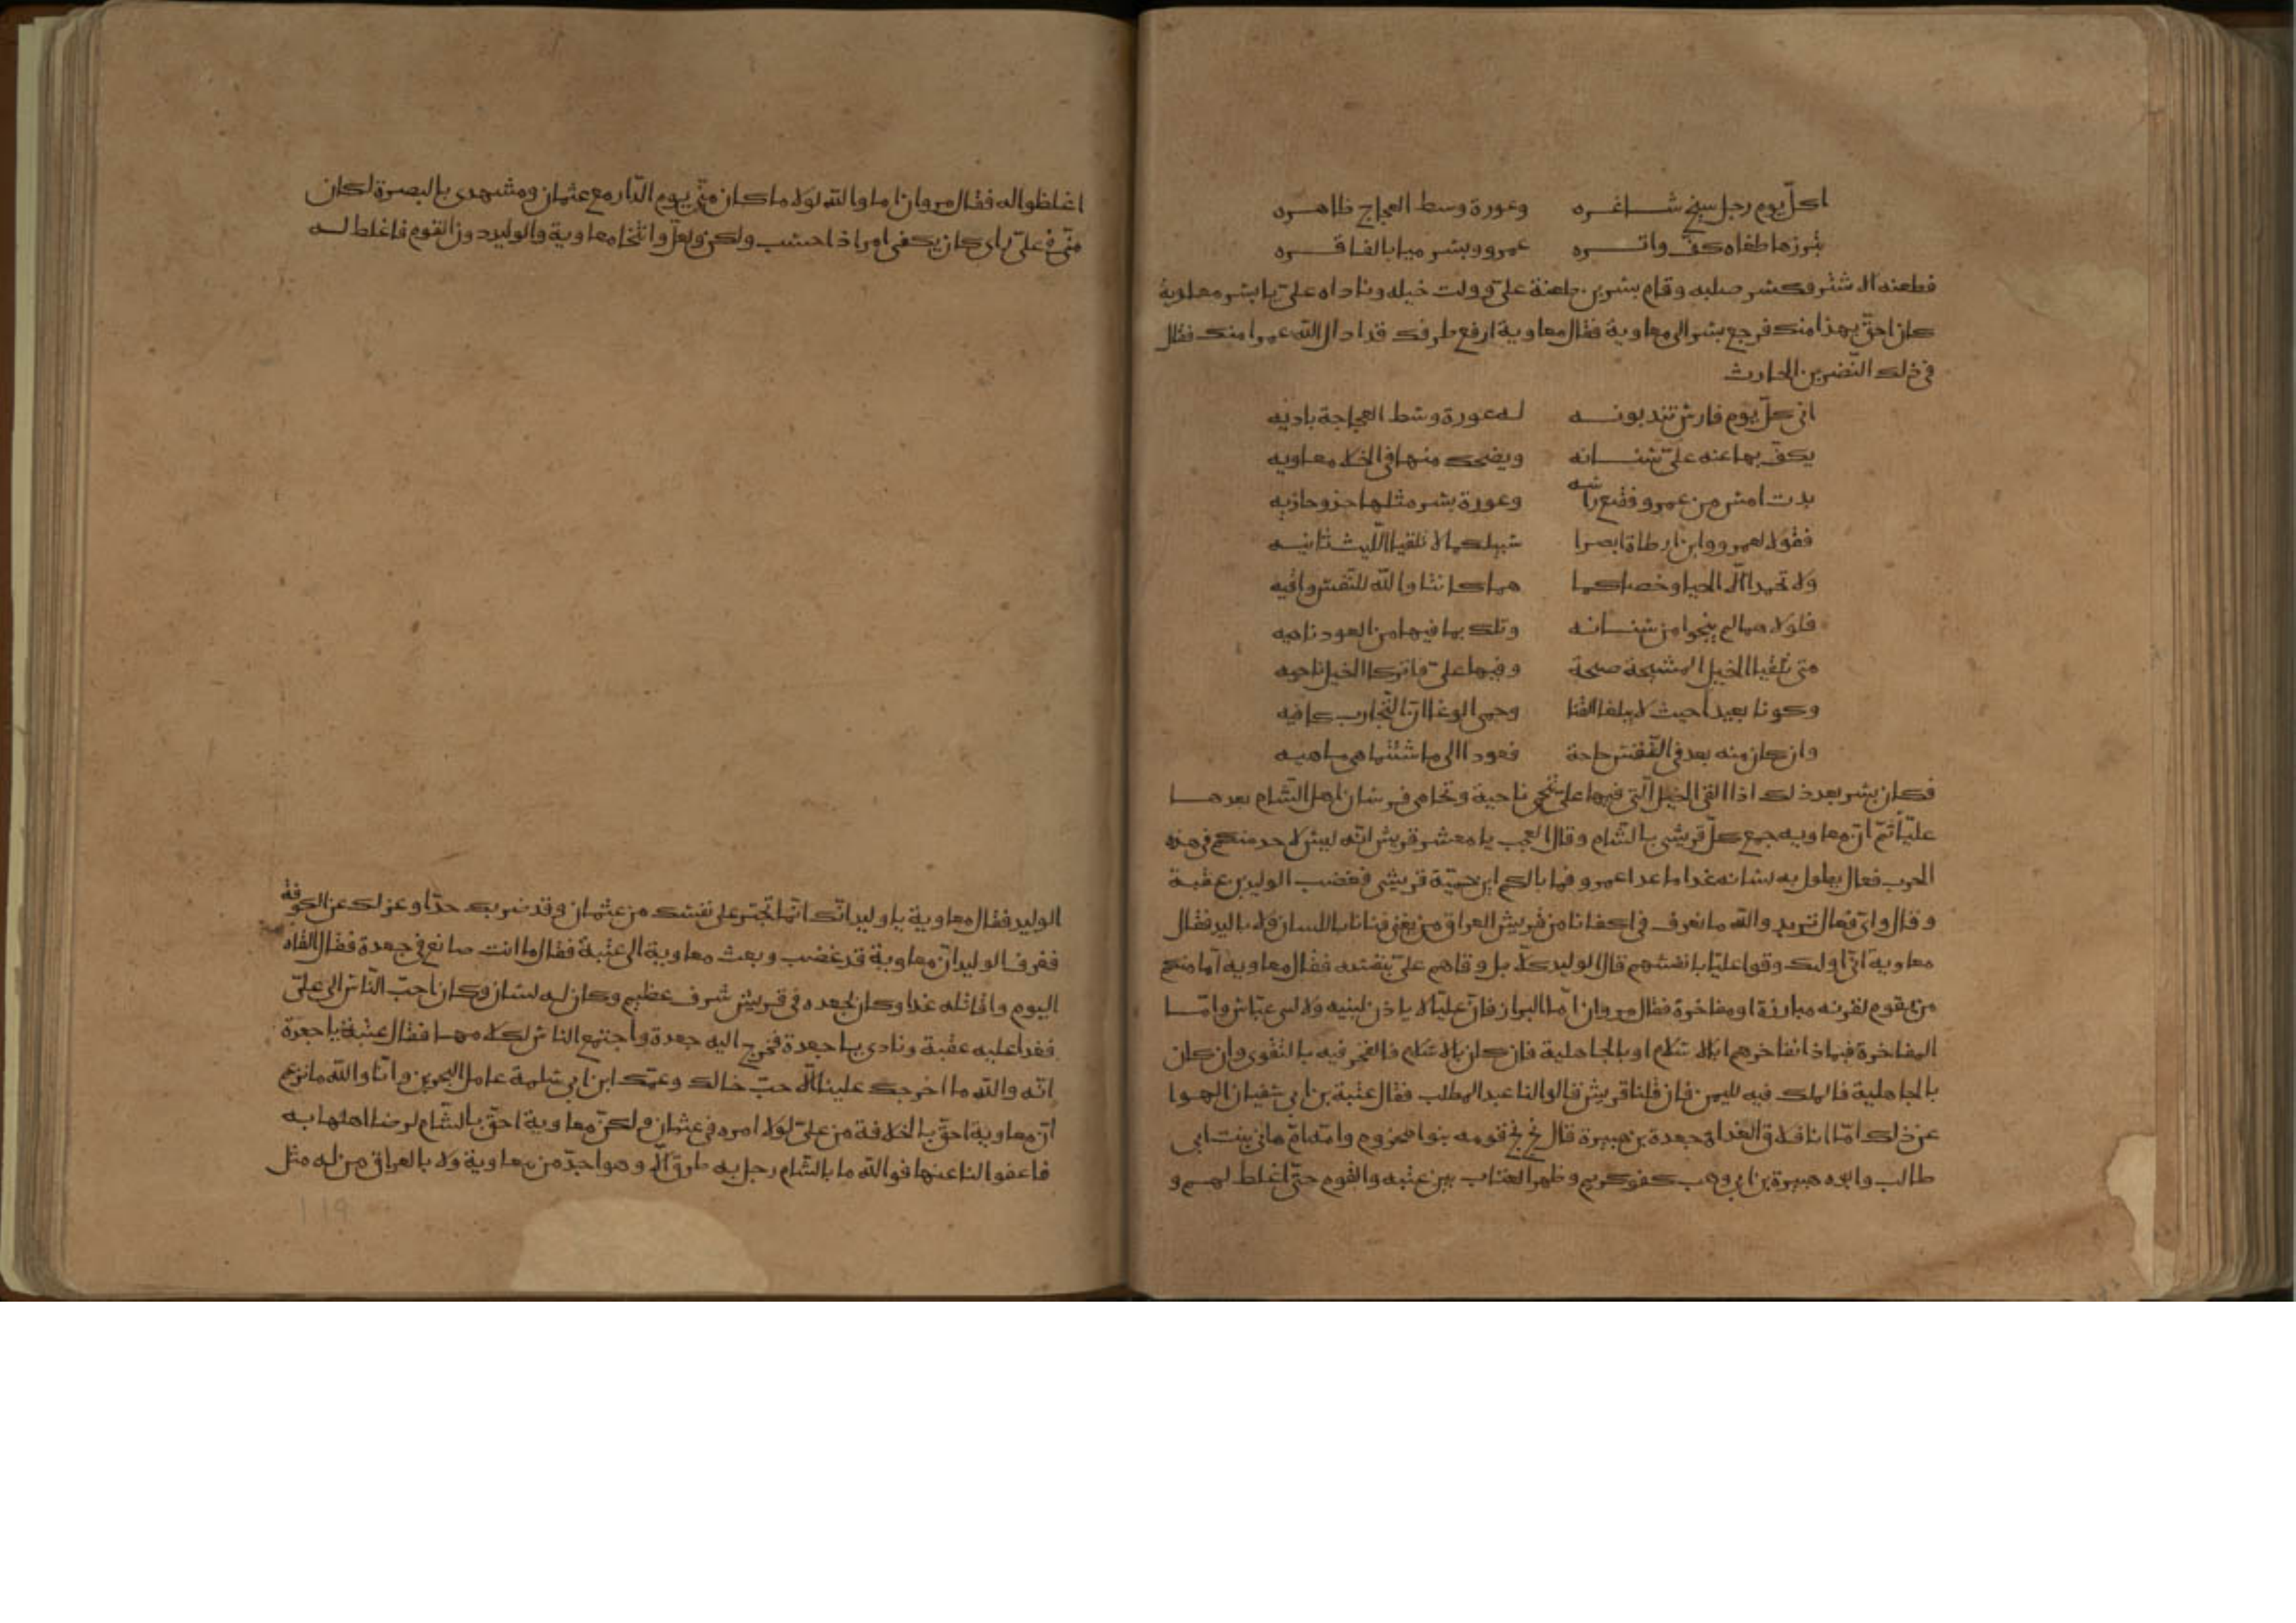 اكلّ يوم رجل شيخ شاغره وعورة وسط العجاج ظاهره
تبرزها طفاه كفّ واتره عمرو وبشر ميا بالفاقره
فطعنه الاشتر فكسر صلبه وقام بشر من طعنة علىّ وولت خيله وناداه علىّ يا بشر معاوية
كان احقّ بهذا منك فرجع بشر الى معاوية فقال معاوية ارفع طرفك قد ادال الله عمرا منك فقال
فى ذلك النّضر بن الحارث
افى كلّ يوم فارس تندبونه له عورة وسط العجاجة باديه
يكفّ بها عنه علىّ سنانه ويضحك منها فى الخلا معاويه
بدت امس من عمرو فقنع راسه وعورة بشر مثلها حذو حاذيه
فقولا لعمرو وابن ارطاة ابصرا سبيلكما لا تلقيا اللّيث ثانيه
ولا تحمدا الّا الحيا وخصاكما هما كانتا والله للنّفس واقيه
فلولا هما لم ينجوا من سنانه وتلك بما فيها من العود ناهيه
متى تلقيا الخيل المشيحة صيحة وفيها علىّ فاتركا الخيل ناحيه
وكونا بعيدا حيث لا يبلغ القنا وحمى الوغا انّ التّجارب كافيه
وان كان منه بعد فى النّفس حاجة فعودا الى ما شئتما هى ماهيه
فكان بشر بعد ذلك اذا القى الخيل الّتى فيها علىّ تنحّى ناحية وتحامى فرسان اهل الشّام بعدها
عليّا ثمّ انّ معاويه جمع كلّ قريشى بالشّام وقال العجب يا معشر قريش انّه ليس لاحد منكم فى هذه
الحرب فعال يطول به لسانه غدا ما عدا عمرو فما بالكم اين حميّة قريش فغضب الوليد بن عقبة
وقال واىّ فعال تريد والله ما نعرف فى اكفانا من قريش العراق من يغنى غنانا باللسان ولا باليد فقال
معاوية انّ اوليك وقوا عليّا بانفسهم قال الوليد كلّا بل وقاهم علىّ بنفسه فقال معاويه اما منكم
من يقوم لقرنه مبارزة او مفاخرة فقال مروان امّا البراز فانّ عليّا لا ياذن لبنيه ولا لبنى عبّاس وامّا
المفاخرة فبماذا نفاخرهم ابالاسلام او بالجاهلية فان كان بالاسلام فالفخر فيه بالتّقوى وان كان
بالجاهلية فالملك فيه لليمن فان قلنا قريش قالوا لنا عبد المطلب فقال عتبة بن ابى سفيان الهوا
عن ذلك امّا انا فلاق الغداة جعدة بن هبيرة قال بخ بخ قومه بنو مخزوم وامّه امّ هانى بنت ابى
طالب وابوه هبيرة بن ابى وهب كفو كريم وظهر العتاب بين عتبه والقوم حتّى اغلط لهم و
اغلظوا له فقال مروان اما والله لولا ما كان منّى يوم الدّار مع عثمان ومشهدى بالبصرة لكان
منّى فى علىّ راى كان يكفى امرا ذا حسب ولكن ولعلّ وانتخا معاوية والوليد دون القوم فاغلظ له
الوليد فقال معاوية يا وليد انّك انّما تجتر على نفسك من عثمان وقد ضربك حدّا وعزلك عن الكوفة
فعرف الوليد انّ معاوية قد غضب وبعث معاوية الى عتبة فقال ما انت صانع فى جعدة فقال القاه
اليوم واقاتله غدا وكان لجعده فى قريش شرف عظيم وكان له لسان وكان احبّ النّاس الى علىّ
فغدا عليه عقبة ونادى يا جعدة فخرج اليه جعدة واجتمع الناس لكلامهما فقال عتبة يا جعدة
انّه والله ما اخرجك علينا الّا حبّ خالك وعمّك ابن ابى سلمة عامل البحرين وانّا والله ما نزعم
انّ معاوية احقّ بالخلافة من علىّ لولا امره فى عثمان ولكنّ معاوية احقّ بالشّام لرضا اهلها به
فاعفوا لنا عنها فوالله ما بالشّام رجل به طرق الّا وهو اجدّ من معاوية ولا بالعراق من له مثل